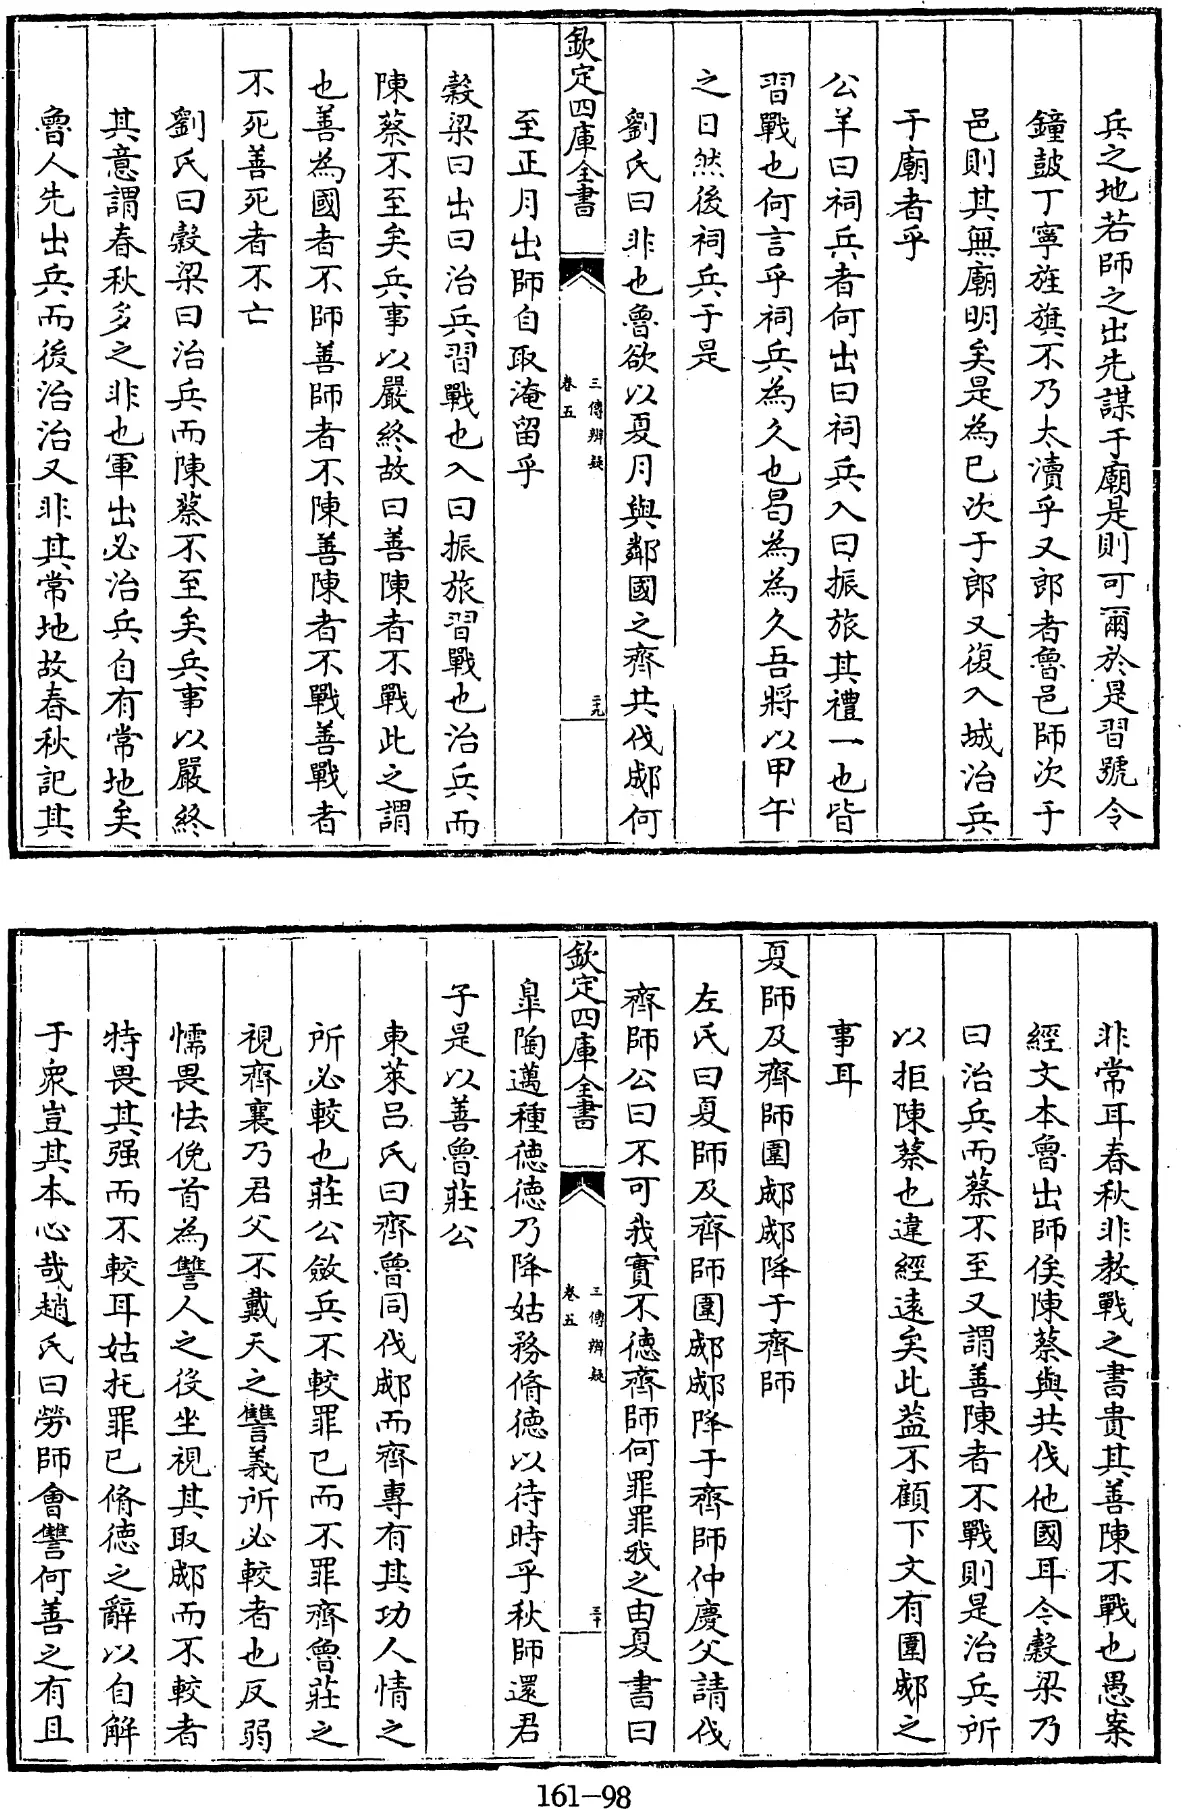 兵之地若師之出先謀于廟是則可爾於是習號令
鐘鼓丁寧旌旗不乃太瀆乎又郎者魯邑師次于
邑則其無廟明矣是為已次于郎又復入城治兵
于廟者乎
公羊曰祠兵者何出曰祠兵入曰振旅其禮一也皆
習戰也何言乎祠兵為久也曷為為久吾將以甲午
之日然後祠兵于是
劉氏曰非也魯欲以夏月與鄰國之齊共伐郕何
欽定四庫全書
三傳辨疑
卷五
二十九
至正月出師自取淹留乎
穀梁曰出曰治兵習戰也入曰振旅習戰也治兵而
陳蔡不至矣兵事以嚴終故曰善陳者不戰此之謂
也善為國者不師善師者不陳善陳者不戰善戰者
不死善死者不亡
劉氏曰穀梁曰治兵而陳蔡不至矣兵事以嚴終
其意謂春秋多之非也軍出必治兵自有常地矣
魯人先出兵而後治治又非其常地故春秋記其
非常耳春秋非教戰之書貴其善陳不戰也愚案
經文本魯出師俟陳蔡與共伐他國耳今穀梁乃
曰治兵而蔡不至又謂善陳者不戰則是治兵所
以拒陳蔡也違經遠矣此葢不顧下文有圍郕之
事耳
夏師及齊師圍郕郕降于齊師
左氏曰夏師及齊師圍郕郕降于齊師仲慶父請伐
齊師公曰不可我實不德齊師何罪罪我之由夏書曰
欽定四庫全書
三傳辨疑
卷五
三十
臯陶邁種德德乃降姑務脩德以待時乎秋師還君
子是以善魯莊公
東萊呂氏曰齊魯同伐郕而齊專有其功人情之
所必較也莊公斂兵不較罪已而不罪齊魯莊之
視齊襄乃君父不戴天之讐義所必較者也反弱
懦畏怯俛首為讐人之役坐視其取郕而不較者
特畏其强而不較耳姑托罪已脩德之辭以自解
于衆豈其本心哉趙氏曰勞師會讐何善之有且
161-98